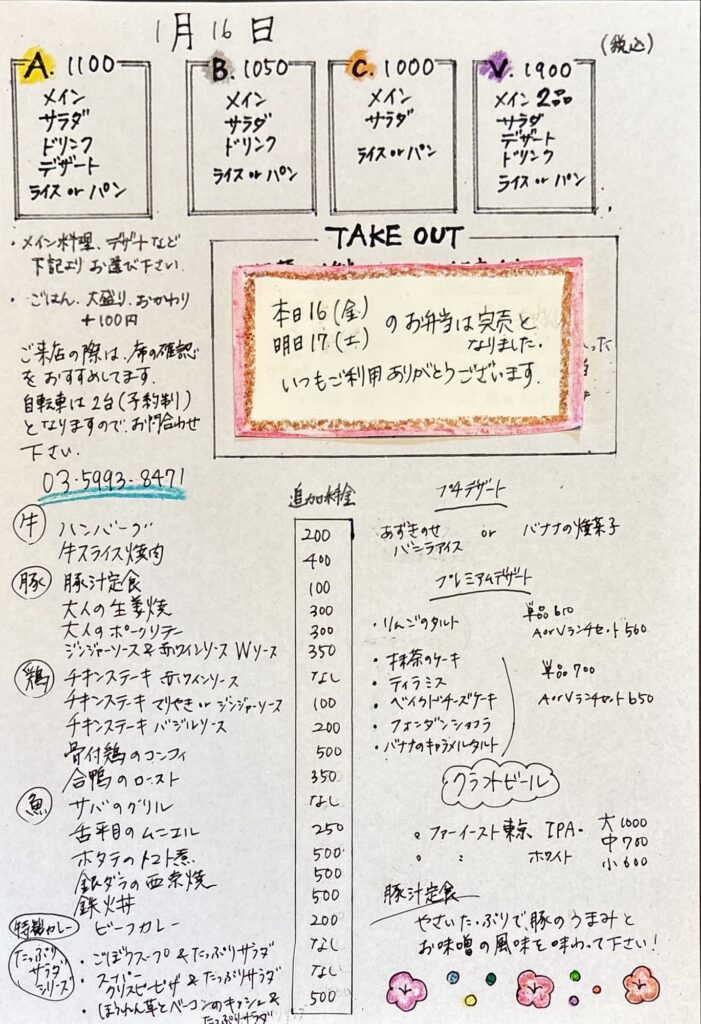 1月16日
(税込)
A. 1100
メイン
サラダ
ドリンク
デザート
ライス or パン
B. 1050
メイン
サラダ
ドリンク
ライス or パン
C. 1000
メイン
サラダ
ライス or パン
V. 1900
メイン 2品
サラダ
デザート
ドリンク
ライス or パン
・メイン料理、デザートなど
下記より お選び下さい.
・ごはん、大盛り、おかわり
+100円
ご来店の際は、席の確認
を おすすめしてます.
自転車は2台(予約制)
となりますので、お問合わせ
下さい.
03-5993-8471
TAKE OUT
本日16(金)
明日17(土)
のお弁当は完売と
なりました.
いつもご利用ありがとうございます.
追加料金
牛
ハンバーグ 200
牛スライス焼肉 400
豚
豚汁定食 100
大人の生姜焼 300
大人のポークソテー 300
ジンジャーソース & 赤ワインソース Wソース 350
鶏
チキンステーキ 赤ワインソース なし
チキンステーキ てりやき or ジンジャーソース 100
チキンステーキ バジルソース 200
骨付鶏のコンフィ 500
合鴨のロースト 350
魚
サバのグリル なし
舌平目のムニエル 250
ホタテのトマト煮 500
銀ダラの西京焼 500
鉄火丼 500
特製カレー
ビーフカレー 200
たっぷり
サラダ
シリーズ
・ごぼうスープ & たっぷりサラダ なし
・スーパー
クリスピーピザ & たっぷりサラダ なし
・ほうれん草とベーコンのキッシュ &
たっぷりサラダ 500
プチデザート
あずきのせ
バニラアイス
or
バナナの焼菓子
プレミアムデザート
・りんごのタルト
単品 610
A or Vランチセット 560
・抹茶のケーキ
・ティラミス
・ベイクドチーズケーキ
・フォンダンショコラ
・バナナのキャラメルタルト
単品 700
A or Vランチセット 650
クラフトビール
ファーイースト東京 IPA.
〃 ホワイト
大 1000
中 700
小 600
豚汁定食
やさいたっぷりで、豚のうまみと
お味噌の風味を味わって下さい!